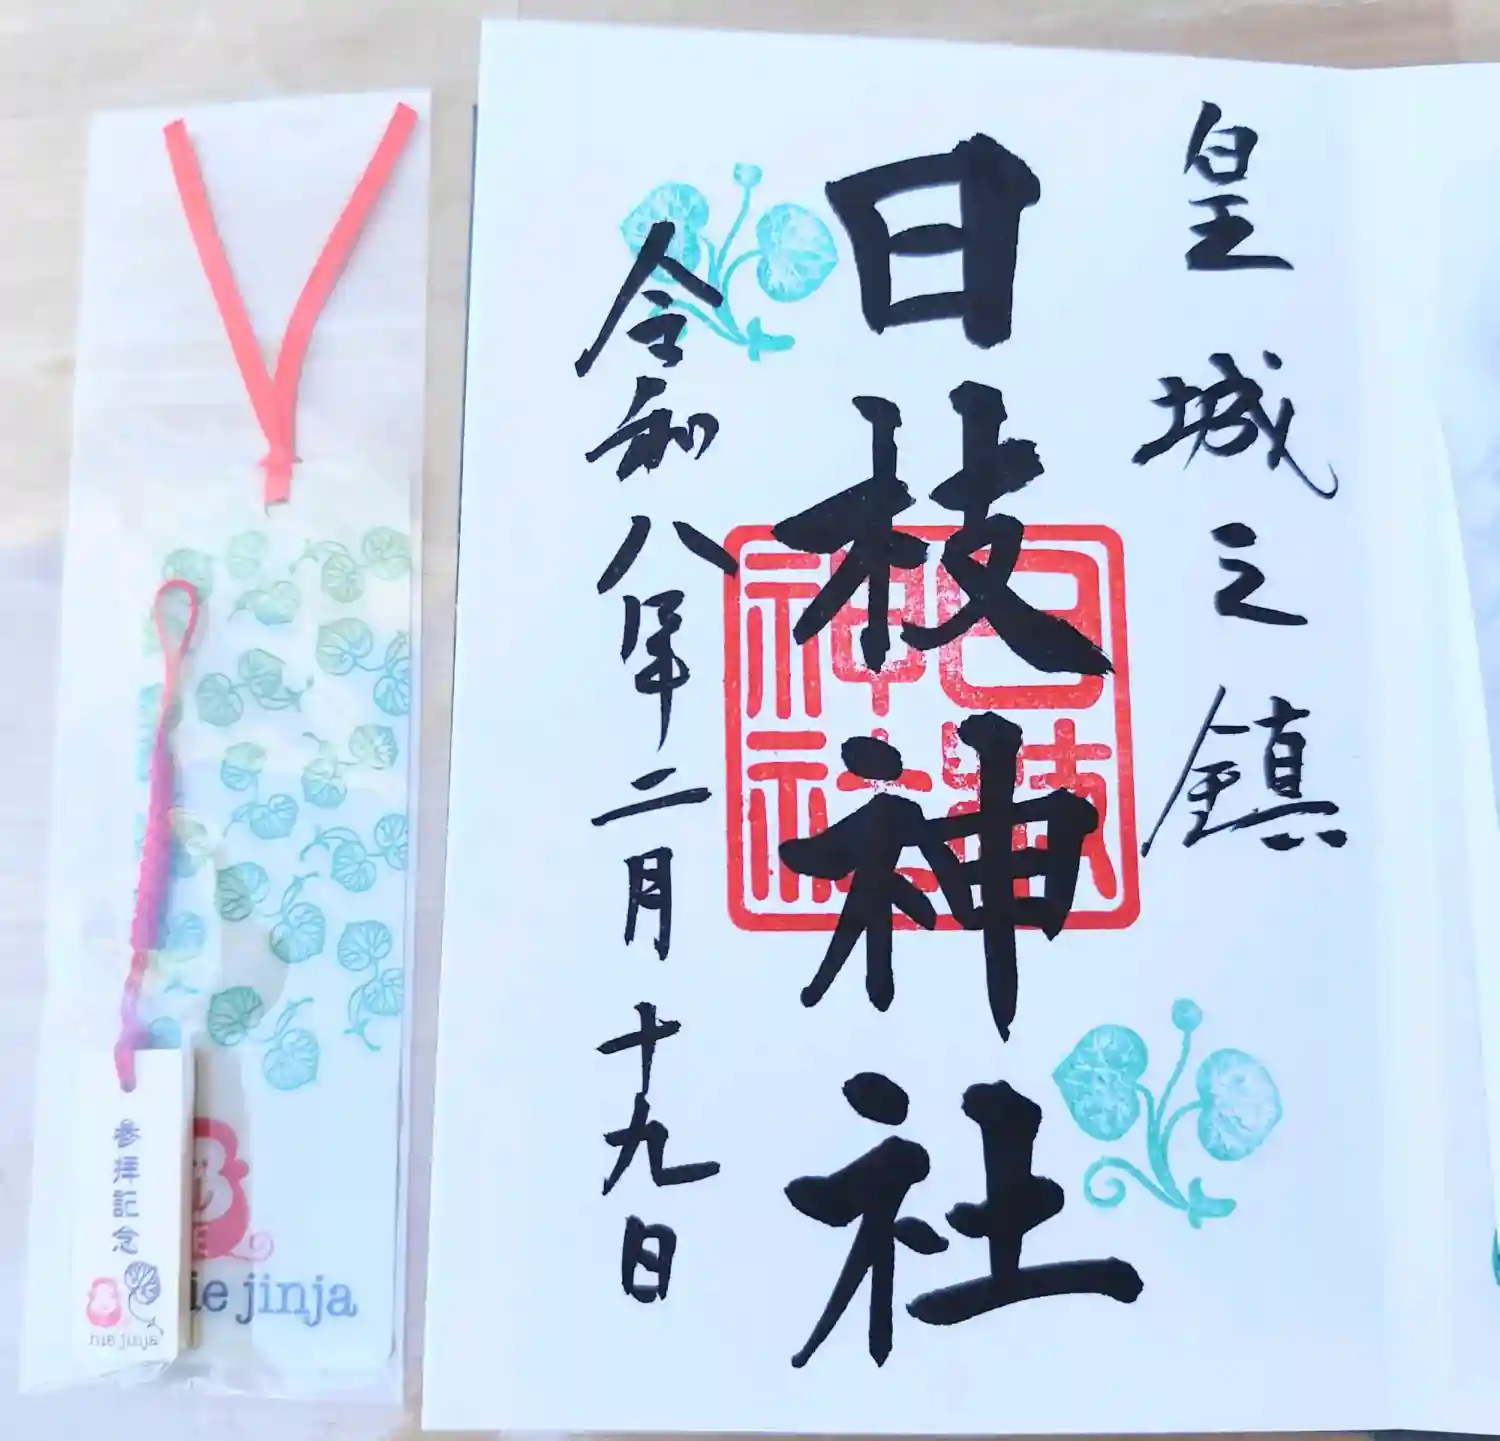 皇城之鎮
日枝神社
日枝神社
令和八年二月十九日
参拝記念
hie jinja
ie jinja